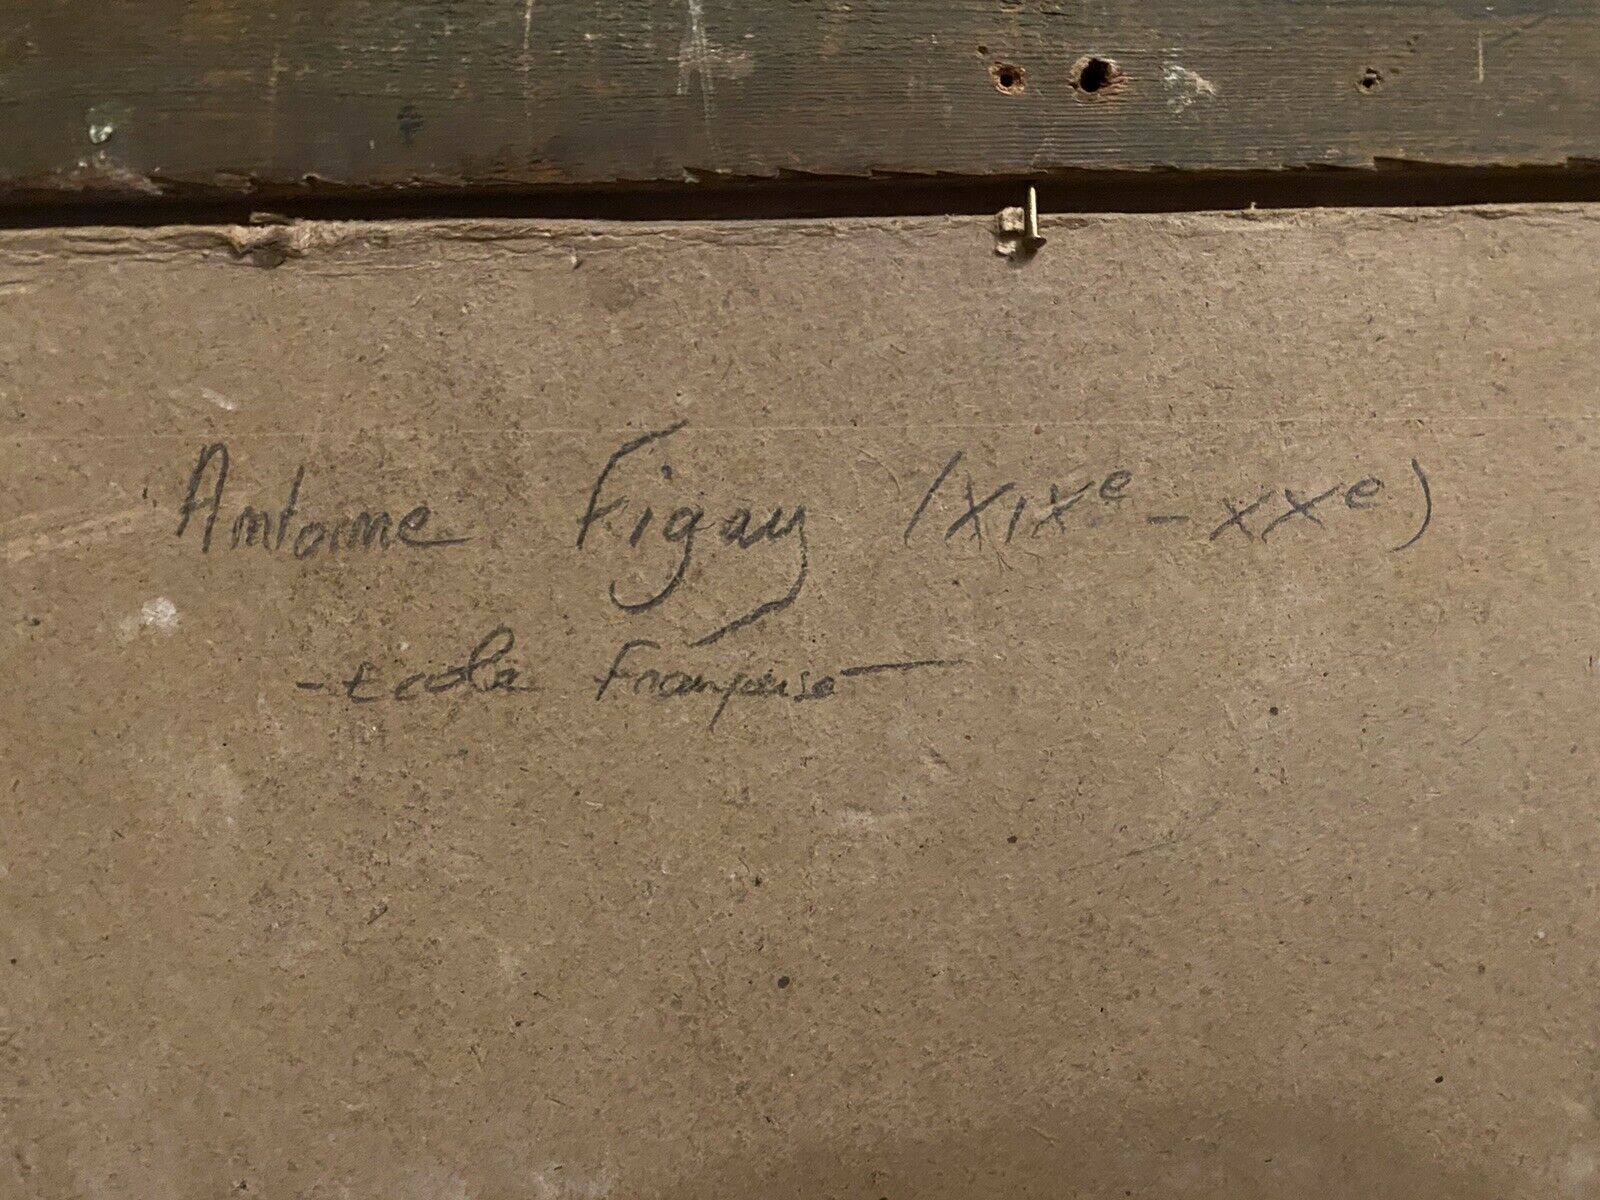 Antoine Figay (XIXe - XXe)
- Ecole Française -